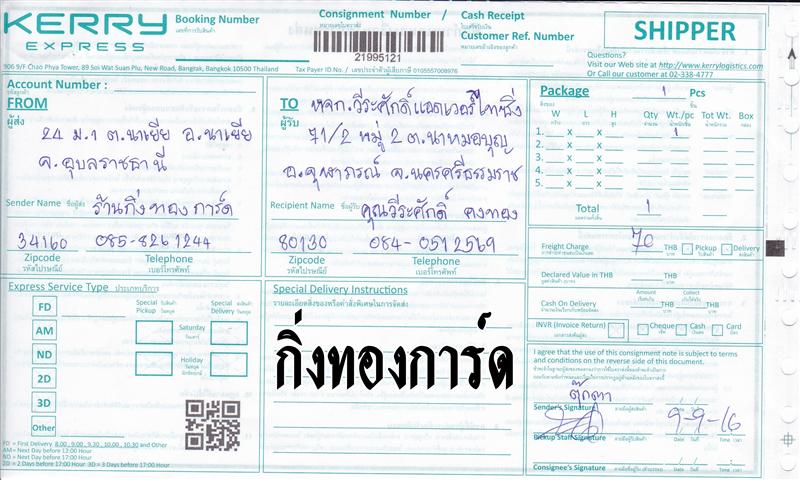 KERRY
EXPRESS
Booking Number
เลขที่การรับสินค้า
Consignment Number /
หมายเลขใบส่งของ
21995121
Cash Receipt
ใบเสร็จรับเงิน
Customer Ref. Number
หมายเลขอ้างอิงของลูกค้า
SHIPPER
Questions?
Visit our Web site at http://www.kerrylogistics.com
Or Call our customer at 02-338-4777
906 9/F Chao Phya Tower, 89 Soi Wat Suan Plu, New Road, Bangrak, Bangkok 10500 Thailand
Tax Payer ID No./ เลขประจำตัวผู้เสียภาษี 0105557008976
Account Number :
FROM
ผู้ส่ง
24 ม.1 ต.นาเยีย อ.นาเยีย
จ.อุบลราชธานี
Sender Name ชื่อผู้ส่ง ร้านกิ่งทองการ์ด
34160 085-8261244
Zipcode Telephone
รหัสไปรษณีย์ เบอร์โทรศัพท์
TO หจก.วีระศักดิ์แอดเวอร์ไทซิ่ง
ผู้รับ 71/2 หมู่ 2 ต.นาหมอบุญ
อ.จุฬาภรณ์ จ.นครศรีธรรมราช
Recipient Name ชื่อผู้รับ คุณวีระศักดิ์ คงทอง
80130 084-0512569
Zipcode Telephone
รหัสไปรษณีย์ เบอร์โทรศัพท์
Package 1 Pcs
W L H Qty Wt./pc Tot Wt. Box
1. x x 1
2. x x
3. x x
4. x x
5. x x
Total 1
Freight Charge 70 THB Pickup Delivery
Declared Value in THB THB
Amount Collect
Cash On Delivery THB THB
INVR (Invoice Return) Cheque Cash Card
Express Service Type ประเภทบริการ
FD
AM
ND
2D
3D
Other
Special Pickup
Special Delivery
Saturday
วันเสาร์
Holiday
วันหยุด
FD = First Delivery 8.00, 9.00, 9.30, 10.00, 10.30 and Other
AM = Next Day before 12:00 Hour
ND = Next Day before 17:00 Hour
2D = 2 Days before 17:00 Hour 3D = 3 Days before 17:00 Hour
Special Delivery Instructions
รายละเอียดสิ่งของหรือคำสั่งพิเศษในการจัดส่ง
กิ่งทองการ์ด
I agree that the use of this consignment note is subject to terms
and conditions on the reverse side of this document.
ตุ๊กตา
Sender's Signature
9-9-16
Pickup Staff Signature Date Time
Consignee's Signature Date Time